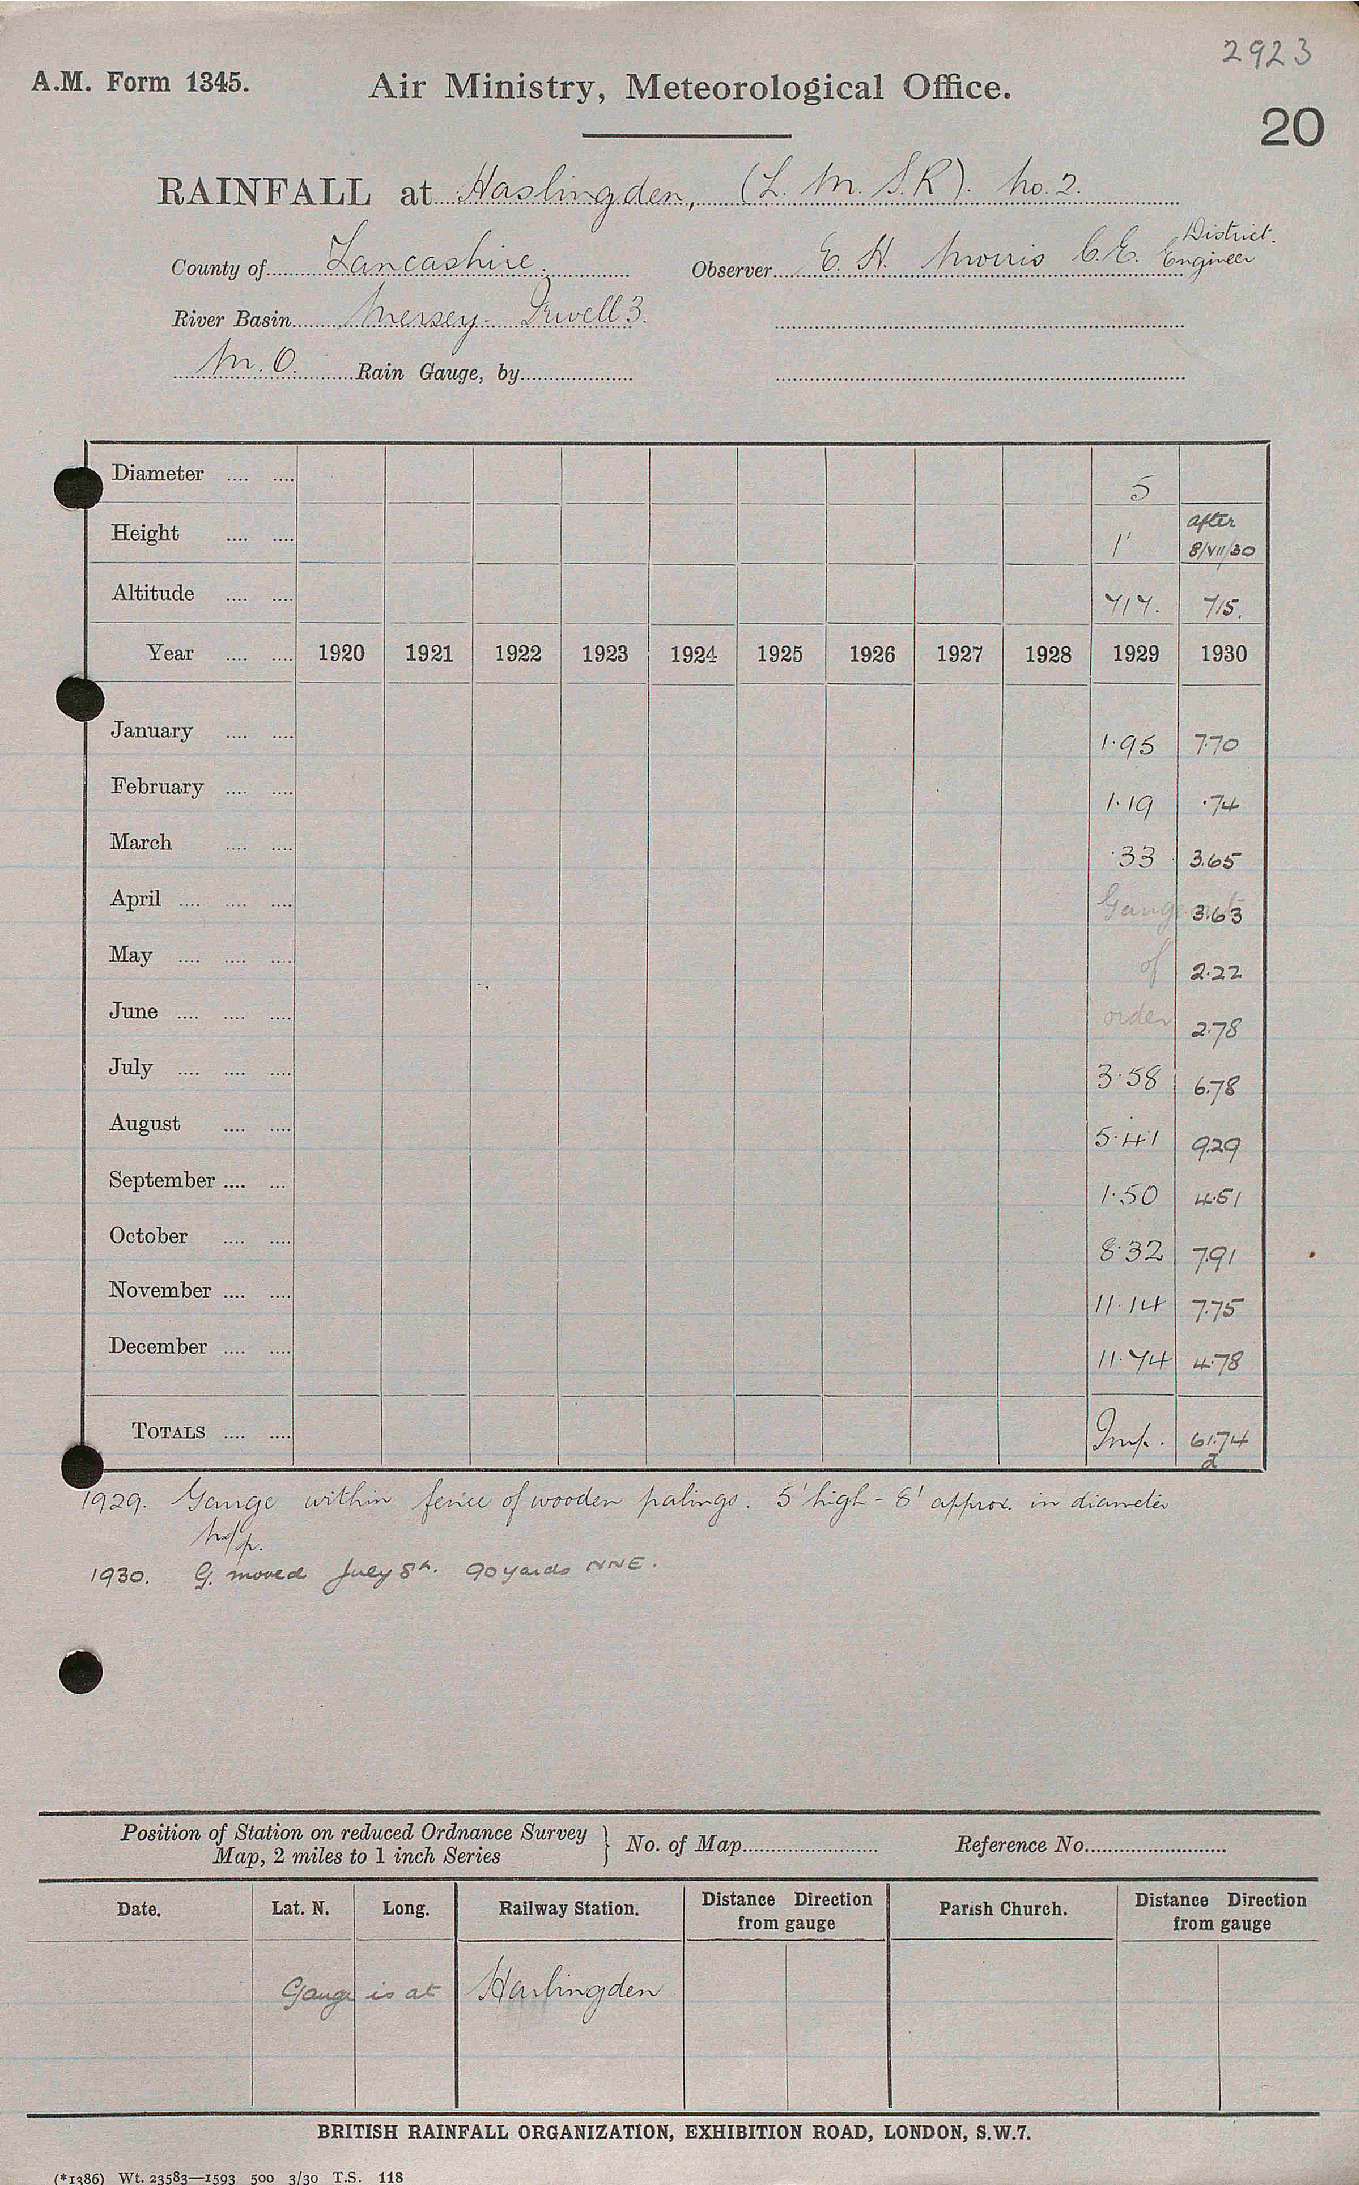 2923
A.M. Form 1345. Air Ministry, Meteorological Office.
20
RAINFALL at Haslingden, (L.M.S.R). No. 2.
County of Lancashire. Observer E. H. Morris C.E. District Engineer
River Basin Mersey - Irwell 3.
M.O. Rain Gauge, by
Diameter .... .... 5
Height .... .... 1' after 8/VII/30
Altitude .... .... 717. 715.
Year .... .... 1920 1921 1922 1923 1924 1925 1926 1927 1928 1929 1930
January .... .... 1.95 7.70
February .... .... 1.19 .74
March .... .... .33 3.65
April .... .... .... Gauge out 3.63
May .... .... .... of 2.22
June .... .... .... order 2.78
July .... .... .... 3.58 6.78
August .... .... 5.41 9.29
September .... ... 1.50 4.51
October .... .... 8.32 7.91
November .... .... 11.14 7.75
December .... .... 11.74 4.78
TOTALS .... .... Imp. 61.74
1929. Gauge within fence of wooden palings. 5' high - 8' approx. in diameter
1930. G. moved July 8th. 90 yards NNE.
Position of Station on reduced Ordnance Survey Map, 2 miles to 1 inch Series } No. of Map Reference No.
Date. Lat. N. Long. Railway Station. Distance Direction from gauge Parish Church. Distance Direction from gauge
Gauge is at Haslingden
BRITISH RAINFALL ORGANIZATION, EXHIBITION ROAD, LONDON, S.W.7.
(*1386) Wt. 23583—1593 500 3/30 T.S. 118